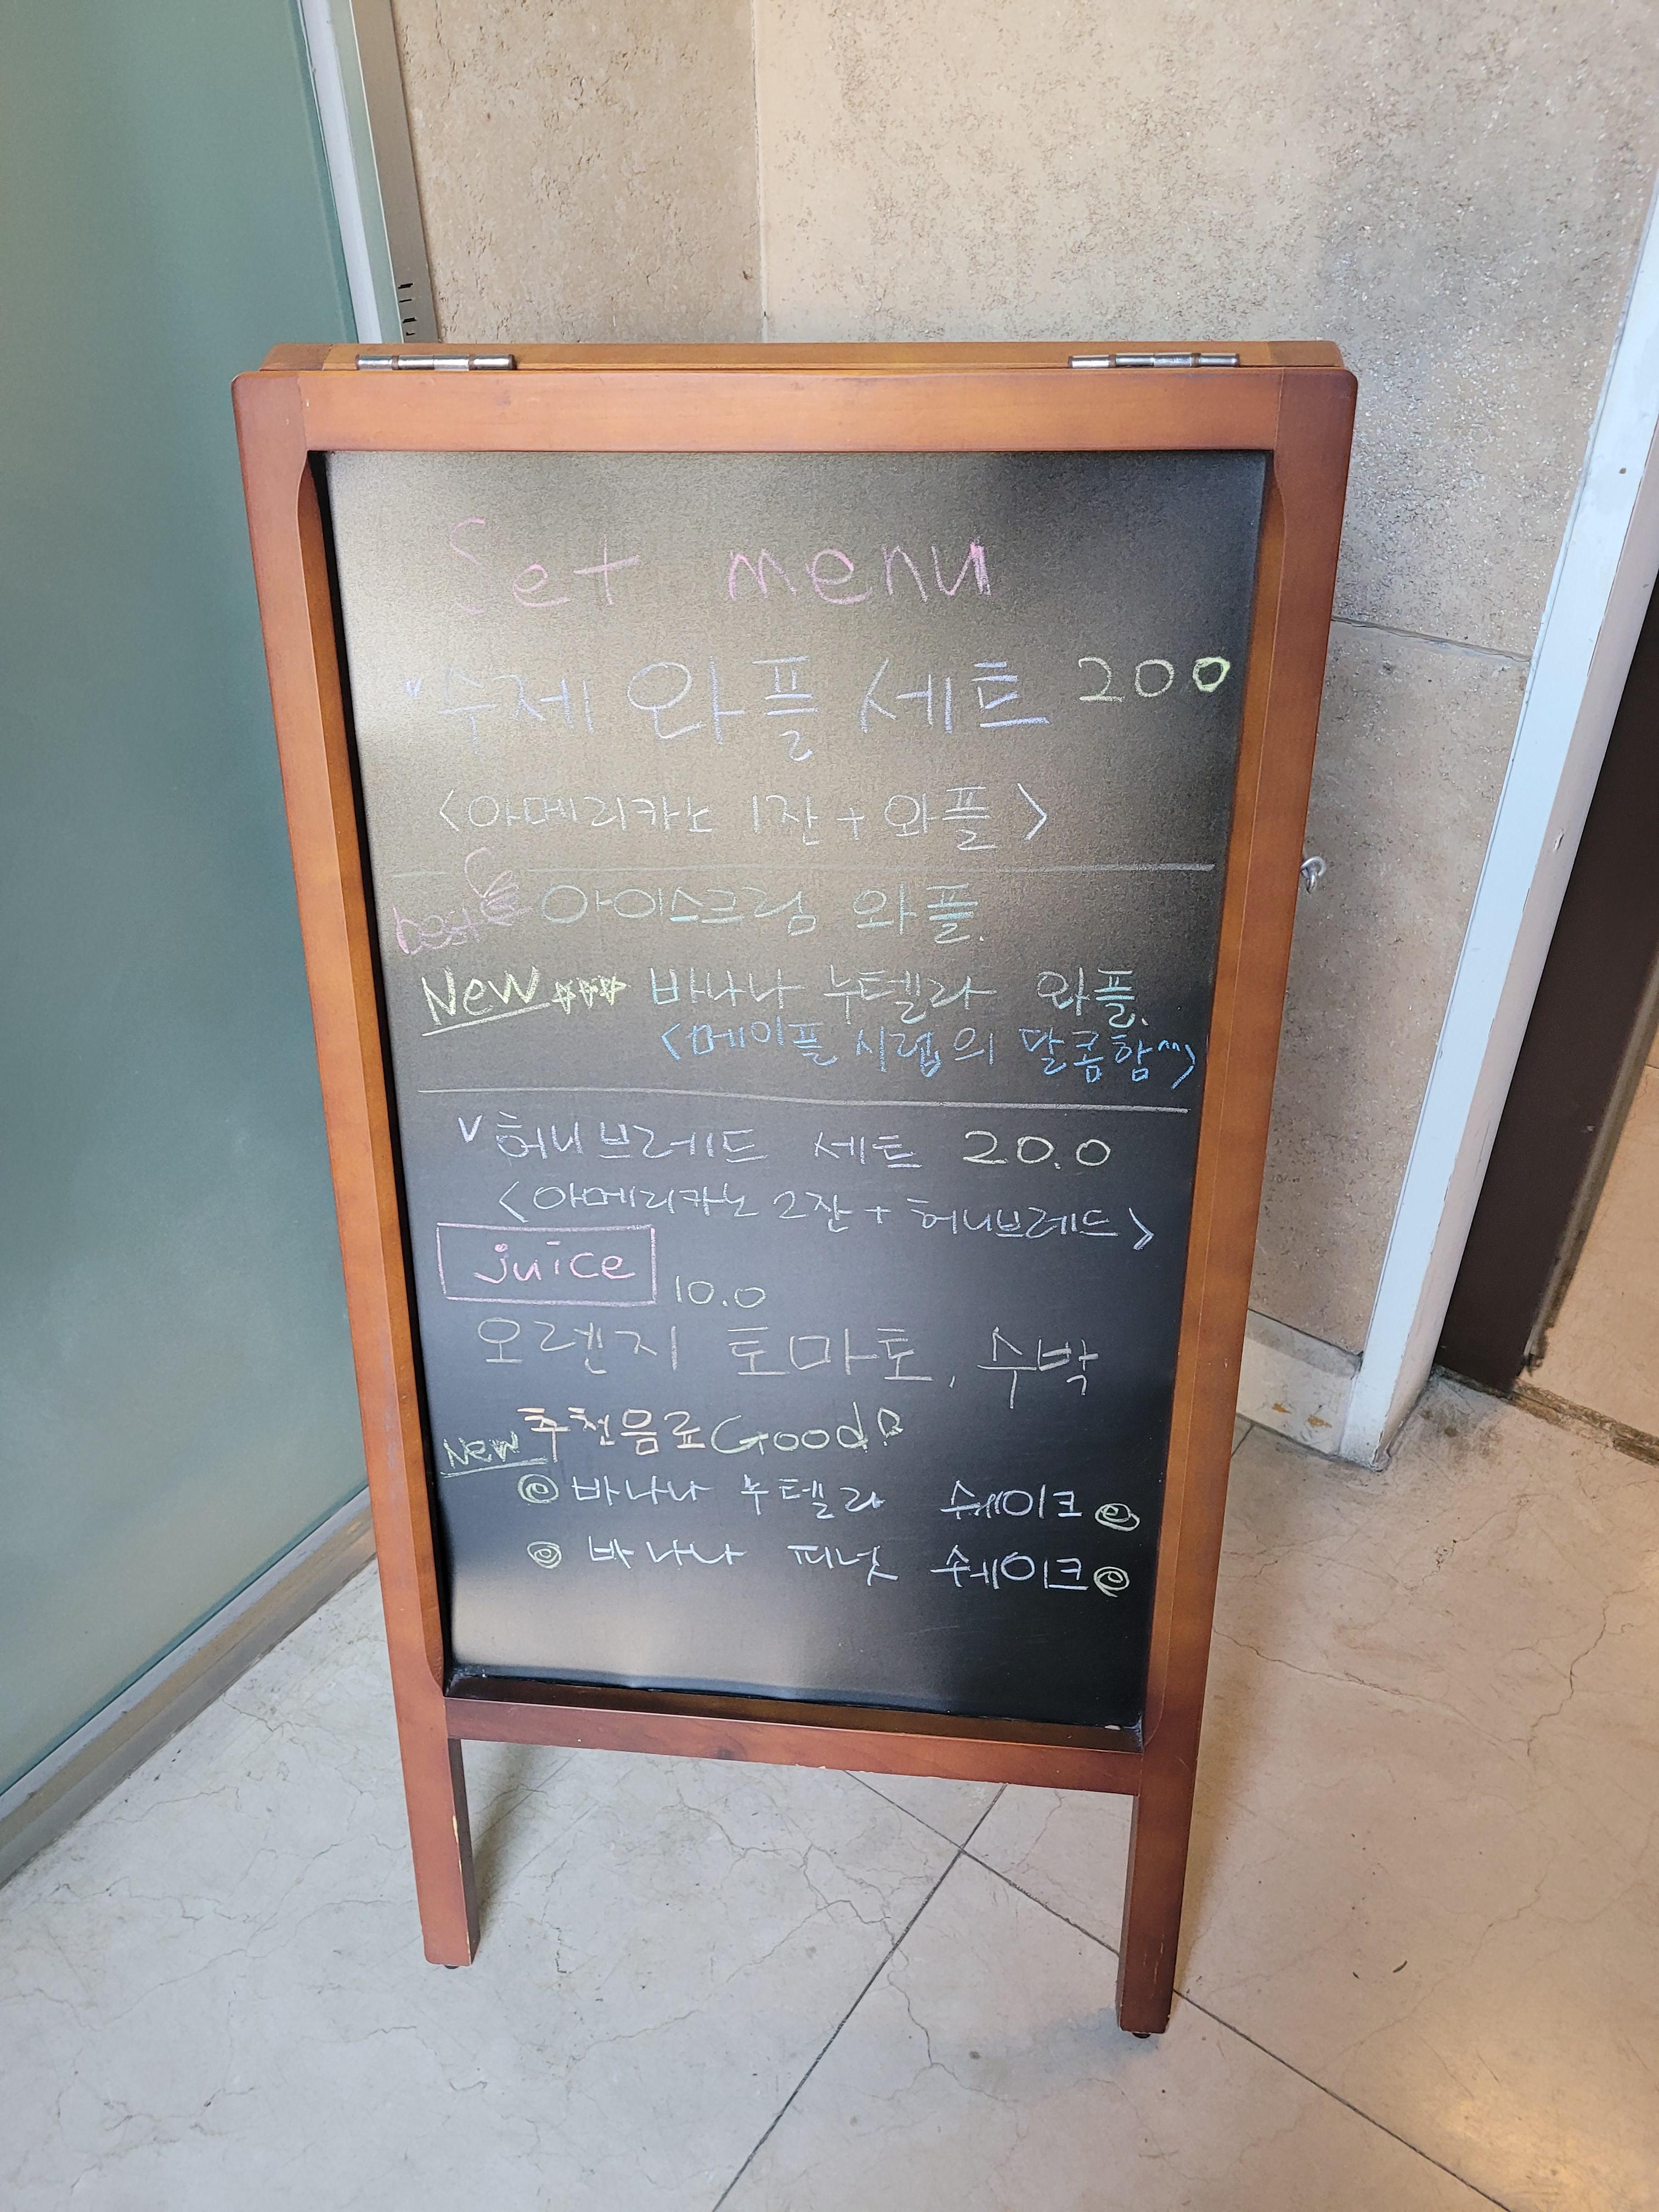 Set menu
수제 와플 세트 200
<아메리카노 1잔 + 와플>
best 아이스크림 와플.
New 바나나 누텔라 와플.
<메이플 시럽의 달콤함^^>
v 허니브레드 세트 20.0
<아메리카노 2잔 + 허니브레드>
juice 10.0
오렌지 토마토, 수박
New 추천음료 Good!
바나나 누텔라 쉐이크
바나나 피넛 쉐이크